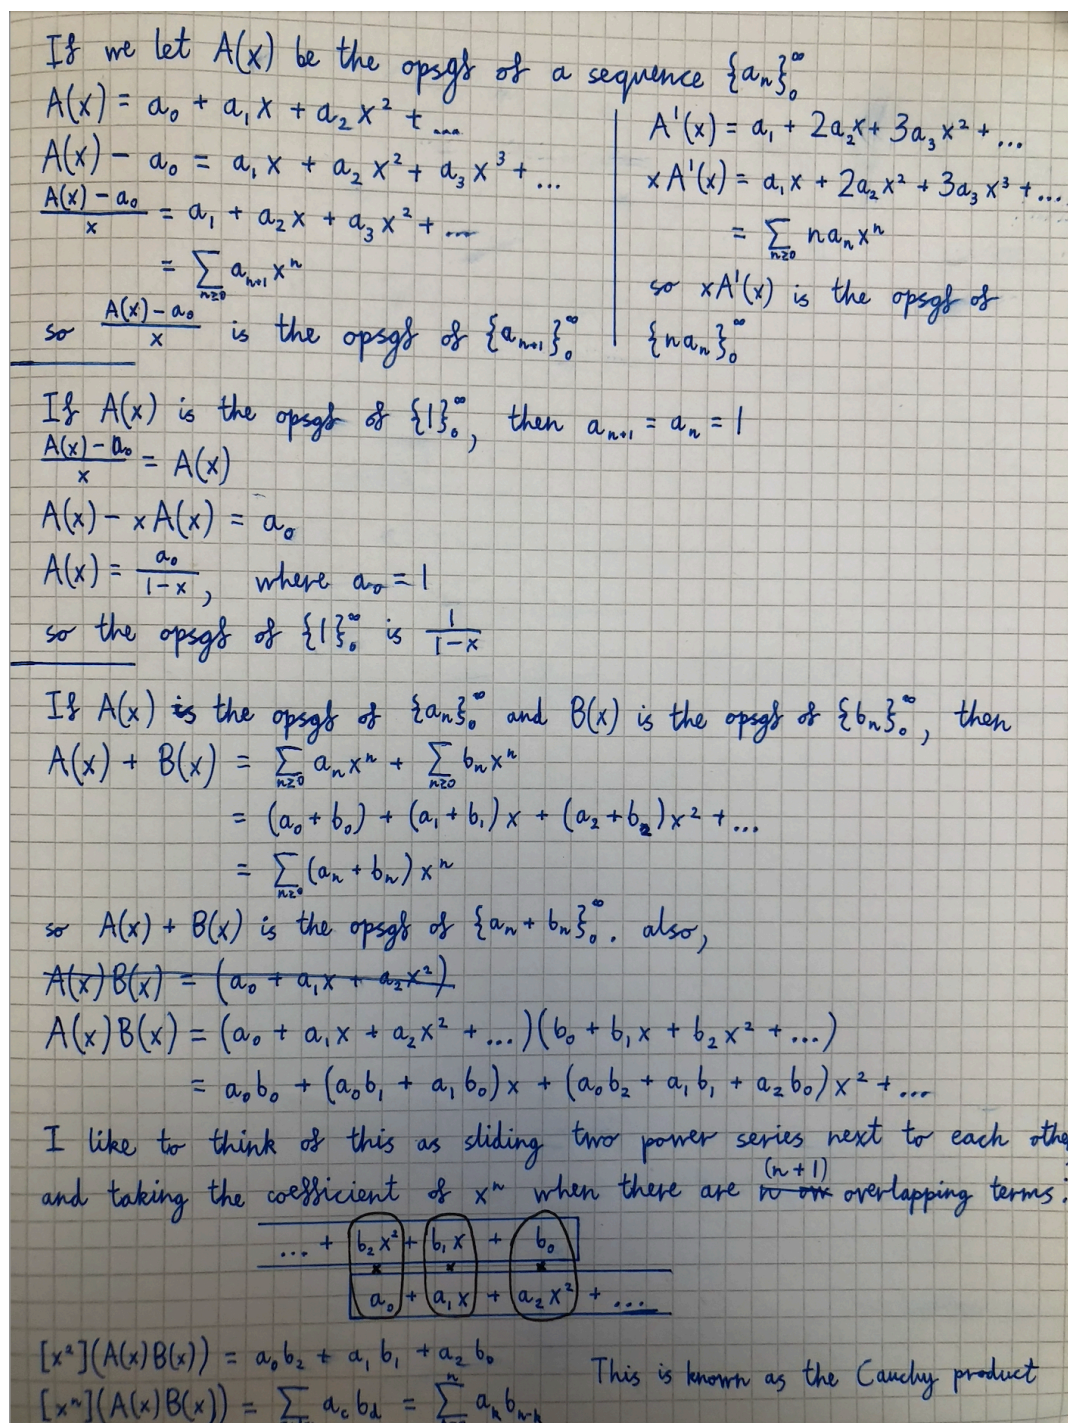 If we let A(x) be the opsgf of a sequence {aₙ}₀^∞
A(x) = a₀ + a₁x + a₂x² + ...
A(x) − a₀ = a₁x + a₂x² + a₃x³ + ...
(A(x) − a₀)/x = a₁ + a₂x + a₃x² + ...
= ∑_{n≥0} aₙ₊₁xⁿ
so (A(x) − a₀)/x is the opsgf of {aₙ₊₁}₀^∞
A'(x) = a₁ + 2a₂x + 3a₃x² + ...
xA'(x) = a₁x + 2a₂x² + 3a₃x³ + ...
= ∑_{n≥0} naₙxⁿ
so xA'(x) is the opsgf of
{naₙ}₀^∞
If A(x) is the opsgf of {1}₀^∞, then aₙ₊₁ = aₙ = 1
(A(x) − a₀)/x = A(x)
A(x) − xA(x) = a₀
A(x) = a₀/(1−x), where a₀ = 1
so the opsgf of {1}₀^∞ is 1/(1−x)
If A(x) is the opsgf of {aₙ}₀^∞ and B(x) is the opsgf of {bₙ}₀^∞, then
A(x) + B(x) = ∑_{n≥0} aₙxⁿ + ∑_{n≥0} bₙxⁿ
= (a₀ + b₀) + (a₁ + b₁)x + (a₂ + b₂)x² + ...
= ∑_{n≥0} (aₙ + bₙ)xⁿ
so A(x) + B(x) is the opsgf of {aₙ + bₙ}₀^∞. also,
A(x)B(x) = (a₀ + a₁x + a₂x²)
A(x)B(x) = (a₀ + a₁x + a₂x² + ...)(b₀ + b₁x + b₂x² + ...)
= a₀b₀ + (a₀b₁ + a₁b₀)x + (a₀b₂ + a₁b₁ + a₂b₀)x² + ...
I like to think of this as sliding two power series next to each othe
and taking the coefficient of xⁿ when there are (n+1) overlapping terms:
... + b₂x² + b₁x + b₀
× × ×
a₀ + a₁x + a₂x² + ...
[x²](A(x)B(x)) = a₀b₂ + a₁b₁ + a₂b₀
This is known as the Cauchy product
[xⁿ](A(x)B(x)) = ∑ a_c b_d = ∑ⁿ aₖbₙ₋ₖ